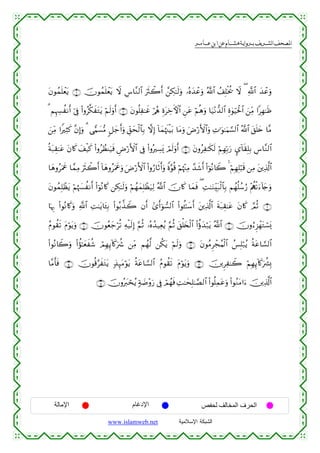 المصحف الشريف برواية هشام عن ابن عامر
وَعْدَ ٱللَّهِ ۖ لَا يُخْلِفُ ٱللَّهُ وَعْدَهُۥ وَلَٰكِنَّ أَكْثَرَ ٱلنَّاسِ لَا يَعْلَمُونَ يَعْلَمُونَ
ظَٰهِرًا مِّنَ ٱلْحَيَوٰةِ ٱلدُّنْيَا وَهُمْ عَنِ ٱلْءَاخِرَةِ هُمْ غَٰفِلُونَ أَوَلَمْ يَتَفَكَّرُوا۟ فِىٓ أَنفُسِهِم ۗ
مَّا خَلَقَ ٱللَّهُ ٱلسَّمَٰوَٰتِ وَٱلْأَرْضَ وَمَا بَيْنَهُمَآ إِلَّا بِٱلْحَقِّ وَأَجَلٍ مُّسَمًّى ۗ وَإِنَّ كَثِيرًا مِّنَ
ٱلنَّاسِ بِلِقَآئِ رَبِّهِمْ لَكَٰفِرُونَ أَوَلَمْ يَسِيرُوا۟ فِى ٱلْأَرْضِ فَيَنظُرُوا۟ كَيْفَ كَانَ عَٰقِبَةُ
ٱلَّذِينَ مِن قَبْلِهِمْ ۚ كَانُوٓا۟ أَشَدَّ مِنْهُمْ قُوَّةً وَأَثَارُوا۟ ٱلْأَرْضَ وَعَمَرُوهَآ أَكْثَرَ مِمَّا عَمَرُوهَا
وَجَآءَتْهُمْ رُسُلُهُم بِٱلْبَيِّنَٰتِ ۖ فَمَا كَانَ ٱللَّهُ لِيَظْلِمَهُمْ وَلَٰكِن كَانُوٓا۟ أَنفُسَهُمْ يَظْلِمُونَ
ثُمَّ كَانَ عَٰقِبَةَ ٱلَّذِينَ أَسَٰٓـُٔوا۟ ٱلسُّوٓأَىٰٓ أَن كَذَّبُوا۟ بِـَٔايَٰتِ ٱللَّهِ وَكَانُوا۟ بِهَا
يَسْتَهْزِءُونَ ٱللَّهُ يَبْدَؤُا۟ ٱلْخَلْقَ ثُمَّ يُعِيدُهُۥ ثُمَّ إِلَيْهِ تُرْجَعُونَ وَيَوْمَ تَقُومُ
ٱلسَّاعَةُ يُبْلِسُ ٱلْمُجْرِمُونَ وَلَمْ يَكُن لَّهُم مِّن شُرَكَآئِهِمْ شُفَعَٰٓؤُا۟ وَكَانُوا۟
بِشُرَكَآئِهِمْ كَٰفِرِينَ وَيَوْمَ تَقُومُ ٱلسَّاعَةُ يَوْمَئِذٍ يَتَفَرَّقُونَ فَأَمَّا
ٱلَّذِينَ ءَامَنُوا۟ وَعَمِلُوا۟ ٱلصَّٰلِحَٰتِ فَهُمْ فِى رَوْضَةٍ يُحْبَرُونَ
الحرف المخالف لحفص الإدغام الإمالة
الشبكة الإسلامية www.islamweb.net